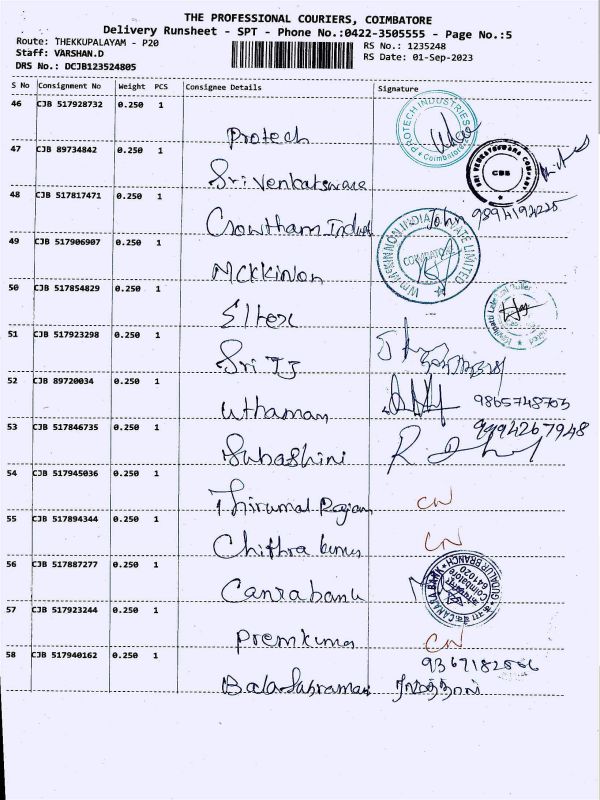 THE PROFESSIONAL COURIERS, COIMBATORE
Delivery Runsheet - SPT - Phone No.:0422-3505555 - Page No.:5
Route: THEKKUPALAYAM - P20
RS No.: 1235248
Staff: VARSHAN.D
RS Date: 01-Sep-2023
DRS No.: DCJB123524805
S No Consignment No Weight PCS Consignee Details Signature
46 CJB 517928732 0.250 1
Protech
PROTECH INDUSTRIES Coimbatore
47 CJB 89734842 0.250 1
Sri Venkateswara
SRI VENKATESWARA COMPANY CBE
48 CJB 517817471 0.250 1
John 9894194225
Gowtham Indust
49 CJB 517906907 0.250 1
COIMBATORE
MCKKinon
50 CJB 517854829 0.250 1
Eltex
51 CJB 517923298 0.250 1
Sri TJ
52 CJB 89720034 0.250 1
Uthaman
9865748703
53 CJB 517846735 0.250 1
9994267948
Subashini
54 CJB 517945036 0.250 1
Thirumal Rajan
CN
55 CJB 517894344 0.250 1
Chithra
CN
56 CJB 517887277 0.250 1
Canrabank
CANARA BANK Coimbatore 641020 BRANCH
57 CJB 517923244 0.250 1
Premkuma
CN
58 CJB 517940162 0.250 1
9367182866
BalaSubraman